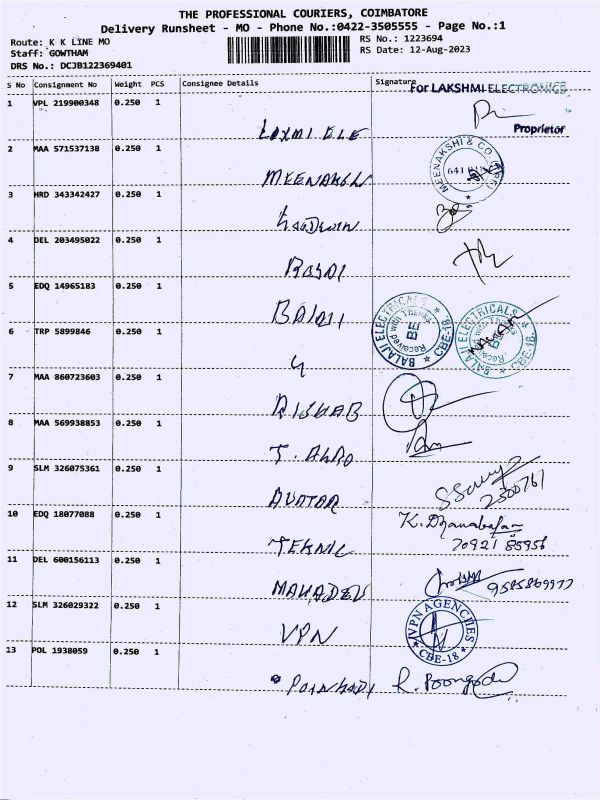 THE PROFESSIONAL COURIERS, COIMBATORE
Delivery Runsheet - MO - Phone No.:0422-3505555 - Page No.:1
Route: K K LINE MO RS No.: 1223694
Staff: GOWTHAM RS Date: 12-Aug-2023
DRS No.: DCJB122369401
S No Consignment No Weight PCS Consignee Details Signature
For LAKSHMI ELECTRONICS
1 VPL 219900348 0.250 1
Proprietor
LAXMI ELE
2 MAA 571537138 0.250 1
MEENAKSHI & CO
MEENAKSHI
3 HRD 343342427 0.250 1
4 DEL 203495022 0.250 1
5 EDQ 14965183 0.250 1
BALAJI
BALAJI ELECTRICALS Received with Thanks CBE-18
BALAJI ELECTRICALS Received with Thanks CBE-18
6 TRP 5899846 0.250 1
7 MAA 860723603 0.250 1
RISHAB
8 MAA 569938853 0.250 1
9 SLM 326075361 0.250 1
AVATAR
2500761
10 EDQ 18077088 0.250 1
K. Dhanabalan
TEKNIC
70921 85956
11 DEL 600156113 0.250 1
MAHADEV
12 SLM 326029322 0.250 1
VPN AGENCIES CBE-18
VPN
13 POL 1938059 0.250 1
R. Poongodi